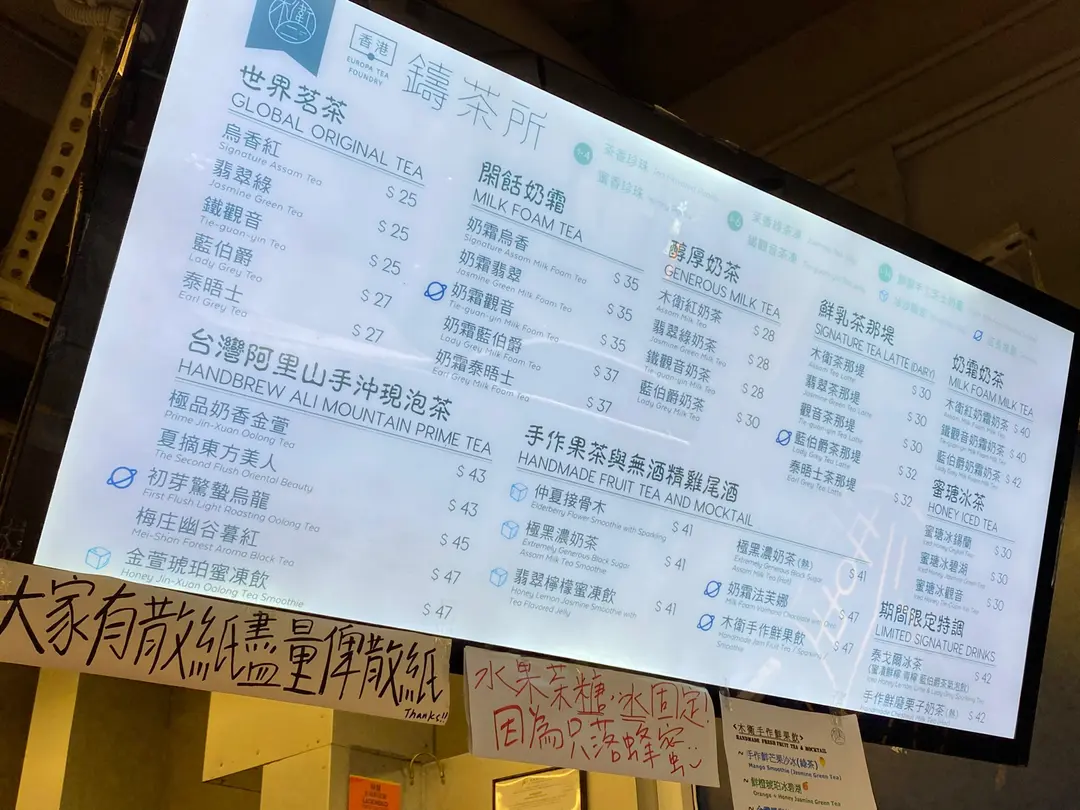 木衛二
香港
EUROPA TEA
FOUNDRY
鑄茶所
世界茗茶
GLOBAL ORIGINAL TEA
烏香紅 $ 25
Signature Assam Tea
翡翠綠 $ 25
Jasmine Green Tea
鐵觀音 $ 25
Tie-guan-yin Tea
藍伯爵 $ 27
Lady Grey Tea
泰晤士 $ 27
Earl Grey Tea
台灣阿里山手沖現泡茶
HANDBREW ALI MOUNTAIN PRIME TEA
極品奶香金萱 $ 43
Prime Jin-Xuan Oolong Tea
夏摘東方美人 $ 43
The Second Flush Oriental Beauty
初芽驚蟄烏龍 $ 45
First Flush Light Roasting Oolong Tea
梅庄幽谷暮紅 $ 47
Mei-Shan Forest Aroma Black Tea
金萱琥珀蜜凍飲 $ 47
Honey Jin-Xuan Oolong Tea Smoothie
茶香珍珠
蜜香珍珠
茉香綠茶凍
鐵觀音茶凍
開餂奶霜
MILK FOAM TEA
奶霜烏香 $ 35
Signature Assam Milk Foam Tea
奶霜翡翠 $ 35
Jasmine Green Milk Foam Tea
奶霜觀音 $ 35
Tie-guan-yin Milk Foam Tea
奶霜藍伯爵 $ 37
Lady Grey Milk Foam Tea
奶霜泰晤士 $ 37
Earl Grey Milk Foam Tea
醇厚奶茶
GENEROUS MILK TEA
木衛紅奶茶 $ 28
Assam Milk Tea
翡翠綠奶茶 $ 28
Jasmine Green Milk Tea
鐵觀音奶茶 $ 28
Tie-guan-yin Milk Tea
藍伯爵奶茶 $ 30
Lady Grey Milk Tea
鮮乳茶那堤
SIGNATURE TEA LATTE (DAIRY)
木衛茶那堤 $ 30
Assam Tea Latte
翡翠茶那堤 $ 30
Jasmine Green Tea Latte
觀音茶那堤 $ 30
Tie-guan-yin Tea Latte
藍伯爵茶那堤 $ 32
Lady Grey Tea Latte
泰晤士茶那堤 $ 32
Earl Grey Tea Latte
奶霜奶茶
MILK FOAM MILK TEA
木衛紅奶霜奶茶 $ 40
鐵觀音奶霜奶茶 $ 40
藍伯爵奶霜奶茶 $ 42
蜜瑭冰茶
HONEY ICED TEA
蜜瑭冰錫蘭 $ 30
蜜瑭冰碧湖 $ 30
蜜瑭冰觀音 $ 30
手作果茶與無酒精雞尾酒
HANDMADE FRUIT TEA AND MOCKTAIL
仲夏接骨木 $ 41
Elderberry Flower Smoothie with Sparkling
極黑濃奶茶 $ 41
Extremely Generous Black Sugar
Assam Milk Tea Smoothie
翡翠檸檬蜜凍飲 $ 41
Honey Lemon Jasmine Smoothie with
Tea Flavored Jelly
極黑濃奶茶(熱) $ 41
Extremely Generous Black Sugar
Assam Milk Tea (Hot)
奶霜法芙娜 $ 47
木衛手作鮮果飲 $ 47
期間限定特調
LIMITED SIGNATURE DRINKS
泰戈爾冰茶 $ 42
手作鮮磨栗子奶茶(熱) $ 42
大家有散紙盡量俾散紙
Thanks!!
水果茶糖.冰固定!
因為只落蜂蜜
<木衛手作鮮果飲>
HANDMADE FRESH FRUIT TEA & MOCKTAIL
~ 手作鮮芒果沙冰(綠茶)
Mango Smoothie (Jasmine Green Tea)
~ 鮮橙琥珀冰碧湖
Orange & Honey Jasmine Green Tea